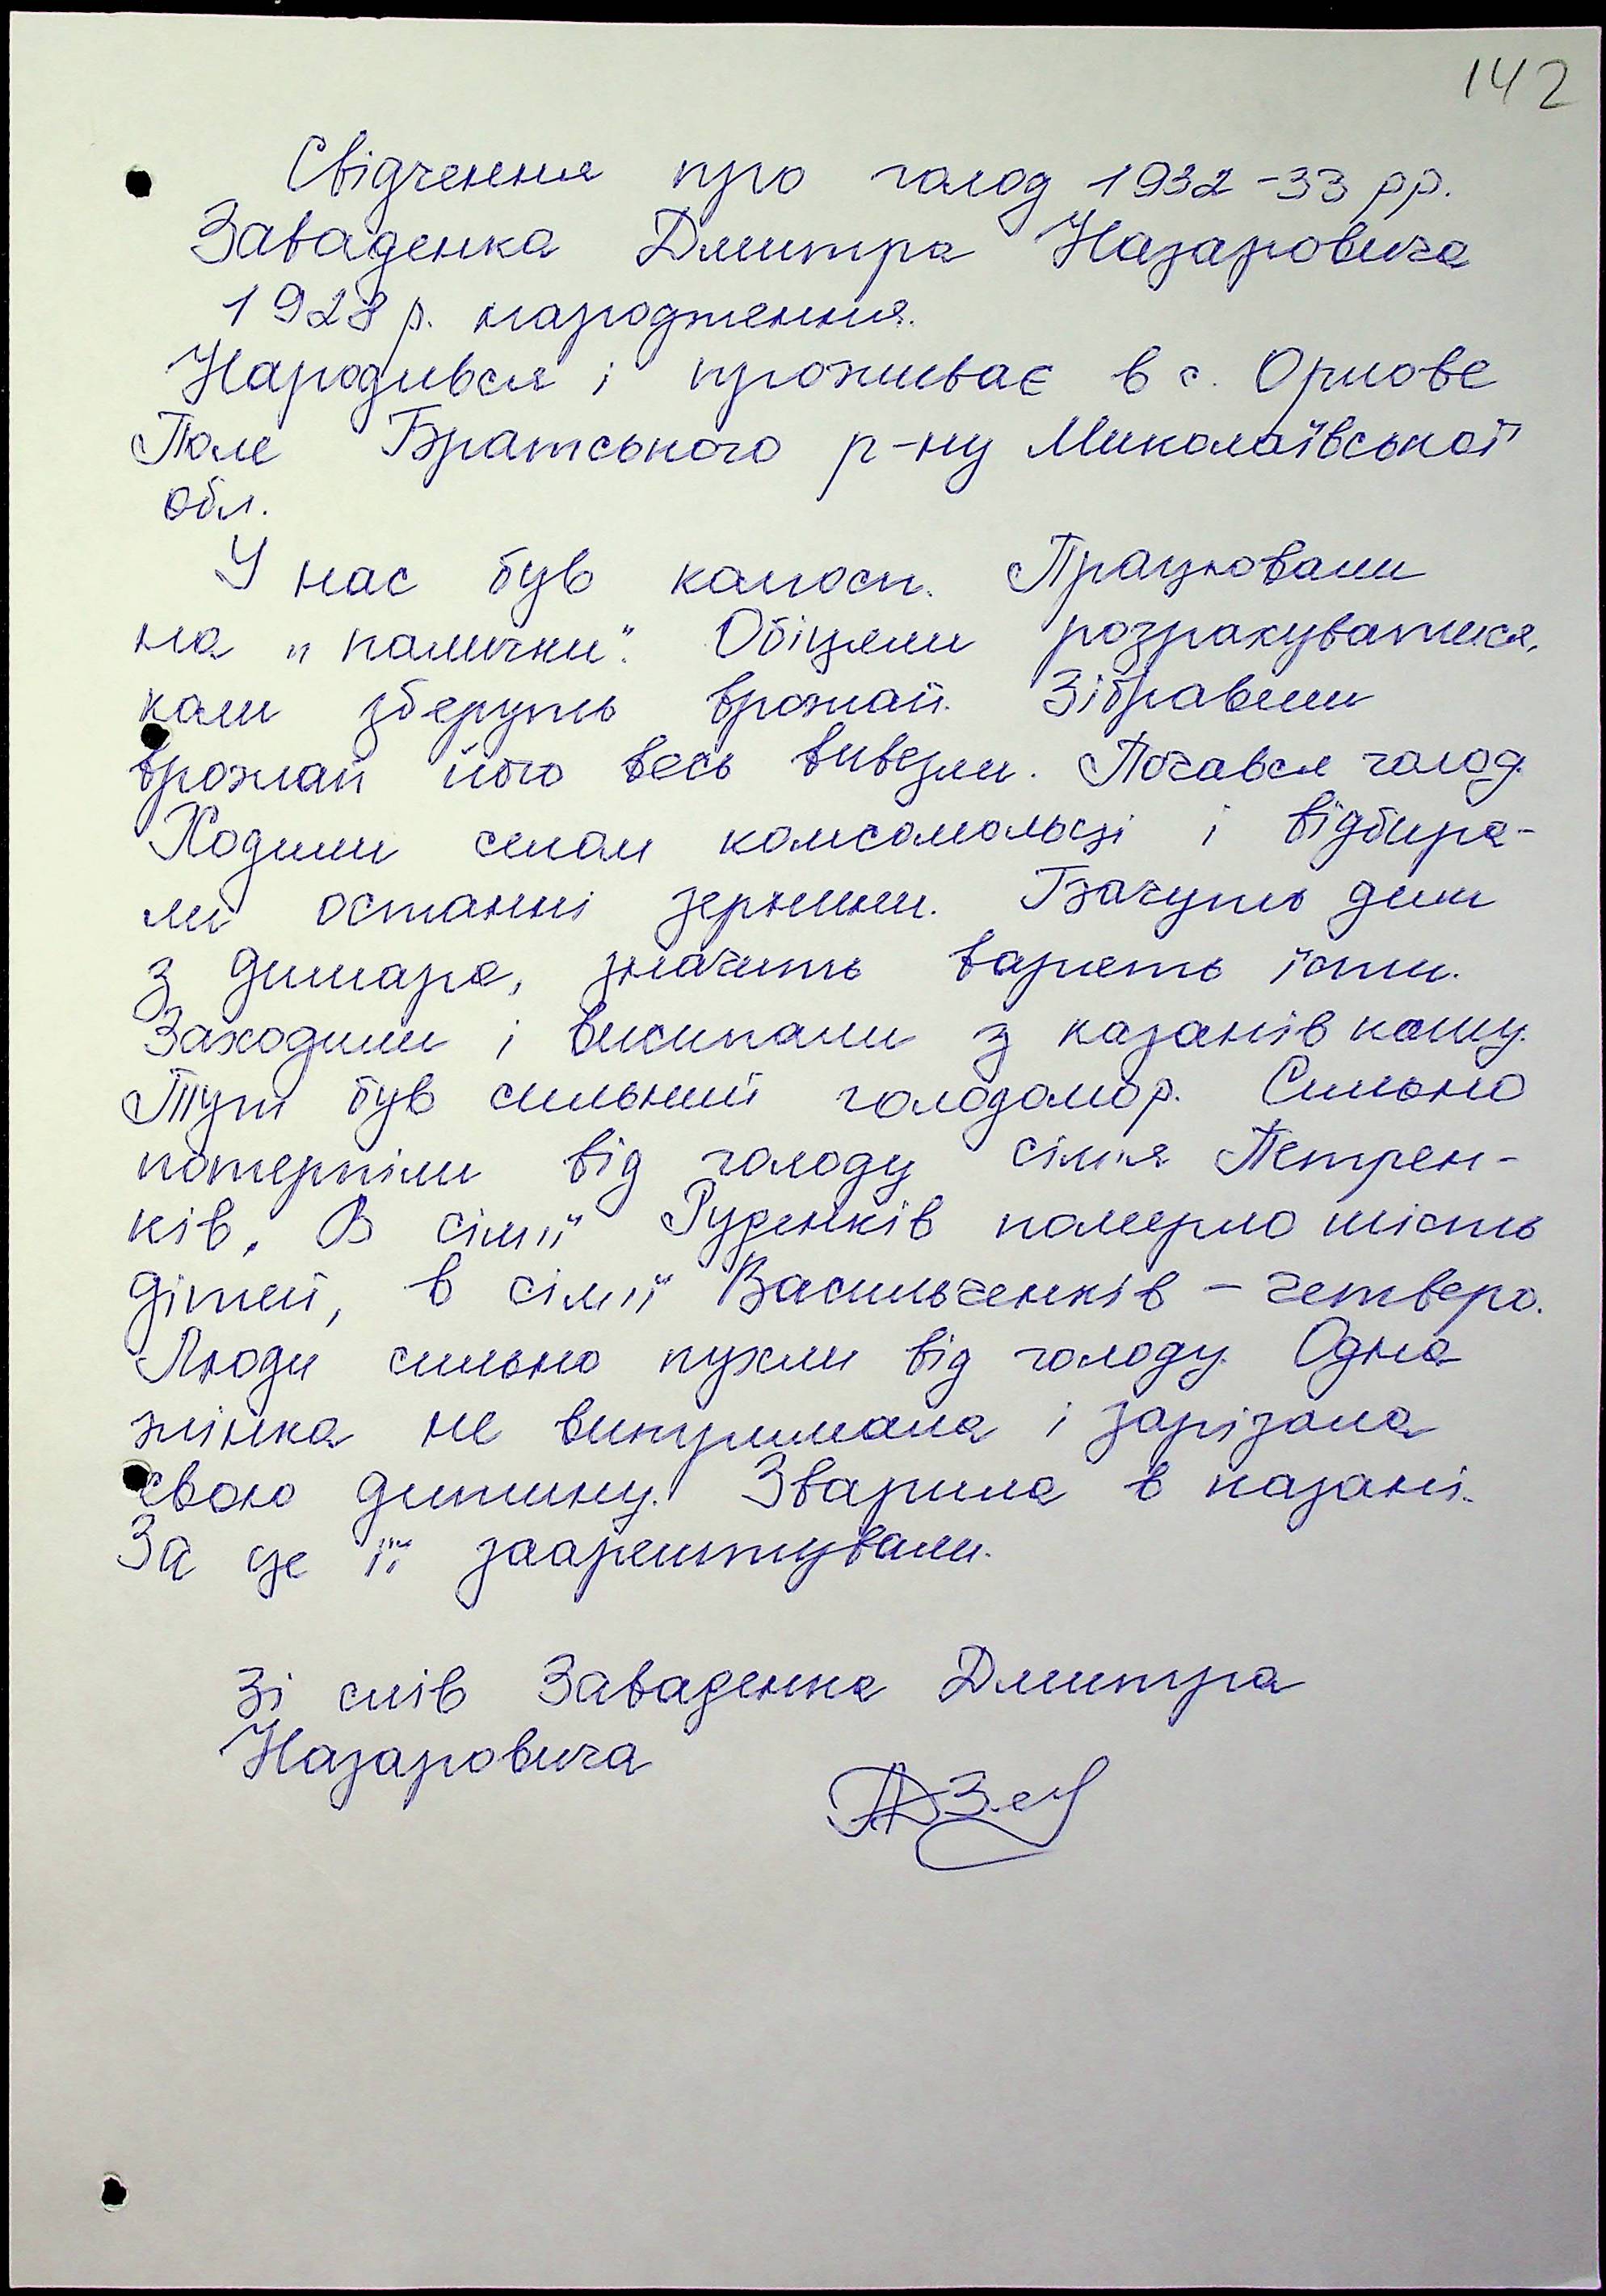 142
Свідчення про голод 1932-33 рр.
Заваденка Дмитра Назаровича
1928 р. народження.
Народився і проживає в с. Орлове
Поле Братського р-ну Миколаївської
обл.
У нас був колгосп. Працювали
на "палички". Обіцяли розрахуватися,
коли зберуть врожай. Зібравши
врожай його весь вивезли. Почався голод.
Ходили селом комсомольці і відбира-
ли останні зернини. Бачуть дим
з димаря, значить варять їсти.
Заходили і висипали з казанів кашу.
Тут був сильний голодомор. Сильно
потерпіли від голоду сім'я Петрен-
ків. В сім'ї Руденків померло шість
дітей, в сім'ї Васильченків - четверо.
Люди сильно пухли від голоду. Одна
жінка не витримала і зарізала
свою дитину. Зварила в казані.
За це її заарештували.
Зі слів Заваденка Дмитра
Назаровича